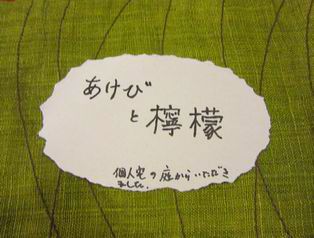 あけび
と檸檬
個人宅の庭からいただき
ました。